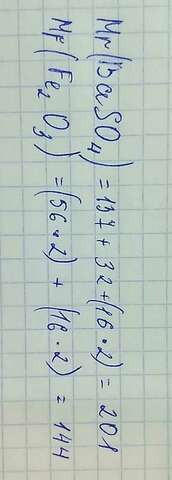 Mr(BaSO₄) = 137 + 32 + (16 · 2) = 201
Mr(Fe₂O₃) = (56 · 2) + (16 · 2) = 144